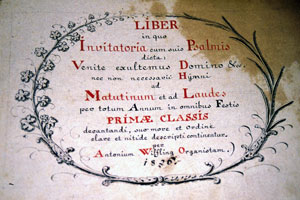 LIBER
in quo
Invitatoria cum suis Psalmis
dicta:
Venite exultemus Domino &c.
nec non necessarii Hÿmni
ad
Matutinum et ad Laudes
per totum Annum in omnibus Festis
PRIMÆ CLASSIS
decantandi, suo more et ordine
clare et nitide descripti continentur.
per
Antonium Organistam.